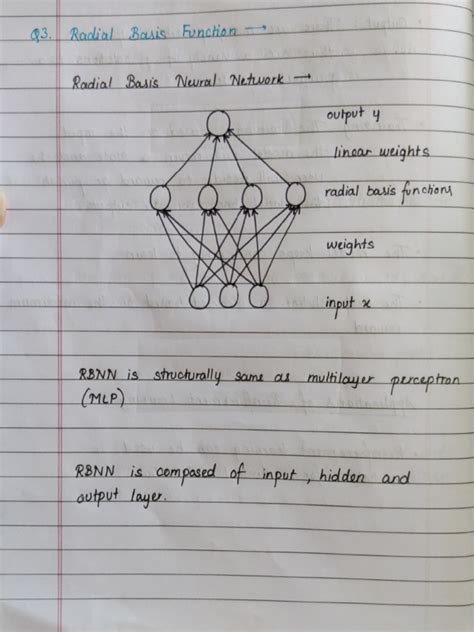 Q3. Radial Basis Function →
Radial Basis Neural Network →
output y
linear weights
radial basis functions
weights
input x
RBNN is structurally same as multilayer perceptron
(MLP)
RBNN is composed of input, hidden and
output layer.